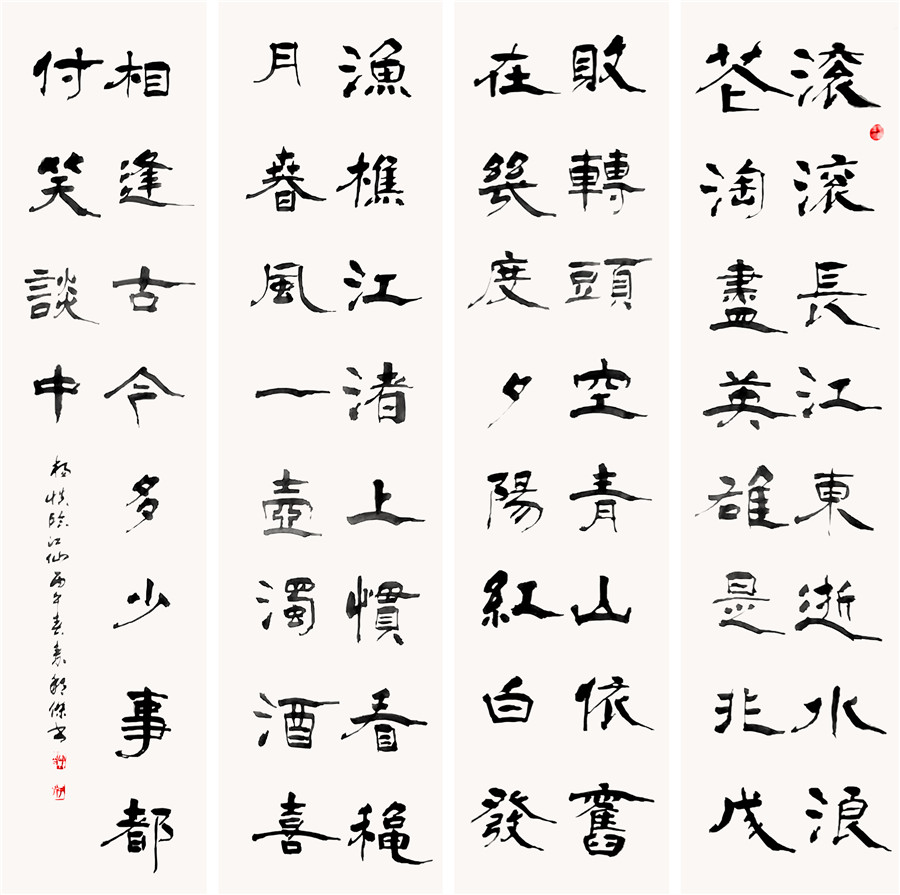 滾滾長江東逝水浪
花淘盡英雄是非成
敗轉頭空青山依舊
在幾度夕陽紅白發
漁樵江渚上慣看穐
月春風一壺濁酒喜
相逢古今多少事都
付笑談中
楊慎臨江仙丙午春袁傑書